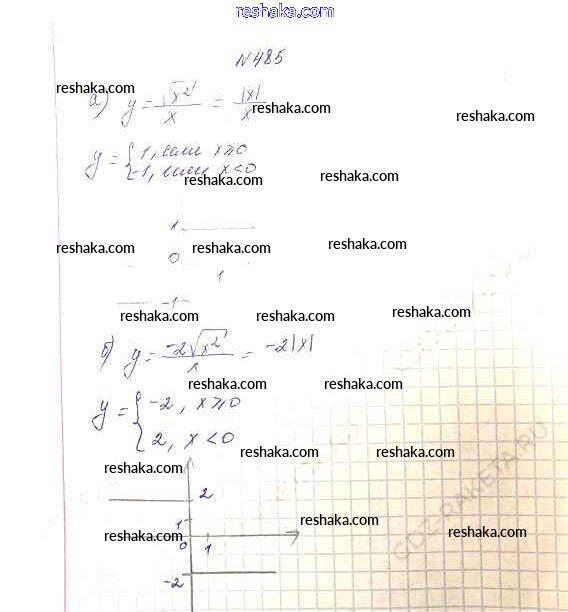 reshaka.com
N485
reshaka.com
а) y = √x² / x = |x| / x
reshaka.com
reshaka.com
y = { 1, если x ≥ 0
-1, если x < 0
reshaka.com
reshaka.com
1
reshaka.com
reshaka.com
reshaka.com
0
1
-1
reshaka.com
reshaka.com
reshaka.com
б) y = -2√x² / x = -2|x|
reshaka.com
reshaka.com
y = { -2, x ≥ 0
2, x < 0
reshaka.com
reshaka.com
reshaka.com
2
reshaka.com
1
reshaka.com
reshaka.com
0 1
-2
GDZ-RAKETA.RU